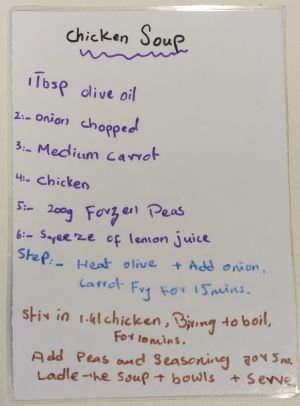 Chicken Soup
1 Tbsp olive oil
2:- onion chopped
3:- Medium Carrot
4:- Chicken
5:- 200g Forzen Peas
6:- Sqeeze of lemon juice
Step:- Heat olive + Add onion,
Carrot Fry For 15mins.
Stir in 1.4l chicken, Bring to boil,
For 10mins.
Add Peas and Seasoning for 5m.
Ladle the Soup + bowls + Serve